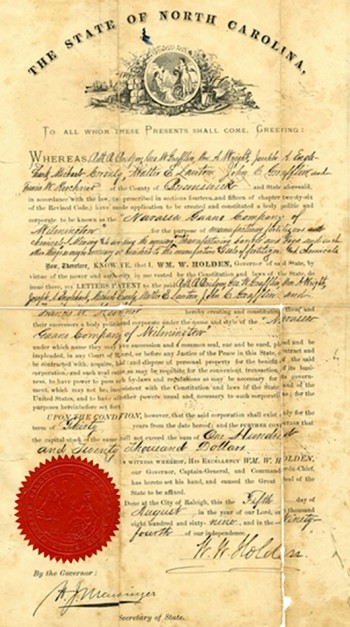 THE STATE OF NORTH CAROLINA,
TO ALL WHOM THESE PRESENTS SHALL COME, GREETING:
WHEREAS, Geo. W. Grafflin, A. Wright, A.
Michael Crowly, Walter E. Lawton, John C. Grafflin and
of the County of Brunswick and State aforesaid,
in accordance with the law, (as prescribed in sections fourteen, and fifteen of chapter twenty-six
of the Revised Code,) have made application to be created and constituted a body politic and
corporate to be known as the "Navassa Guano Company of
Wilmington" for the purpose of manufacturing fertilizers and
chemicals,
manufacture of fertilizers & chemicals
Now, Therefore, KNOW YE, that I WM. W. HOLDEN, Governor of said State, by
virtue of the power and authority in me vested by the Constitution and laws of the State, do
issue these, my LETTERS PATENT to the said Geo. W. Grafflin, A. Wright,
Joseph A. Michael Crowly, Walter E. Lawton, John C. Grafflin and
Francis W. hereby creating and constituting and
their successors a body politic and corporate under the name and style of the "Navassa
Guano Company of Wilmington"
under which name they succession and common seal, sue and be sued, plead and be
impleaded, in any Court of Record, or before any Justice of the Peace in this State, contract and
be contracted with, acquire, hold and dispose of personal property for the benefit of said
corporation, and such real estate as may be requisite for the convenient transaction of its busi-
ness, to have power to pass by-laws and regulations as may be necessary for its govern-
ment, which may not be inconsistent with the Constitution and laws of the State and of the
United States, and to have other powers usual and necessary to such corporations for the
purposes hereinbefore set forth
UPON THE CONDITION, however, that the said corporation shall exist only for the
term of Thirty years from the date hereof; and the FURTHER CONDITION that
the capital stock of the same shall not exceed the sum of One Hundred
and Seventy Thousand Dollars
WITNESS WHEREOF, HIS EXCELLENCY WM. W. HOLDEN,
our Governor, Captain-General, and Commander-in-Chief,
has hereto set his hand, and caused the Great Seal of the
State to be affixed.
Done at the City of Raleigh, this the Fifth day of
August in the year of our Lord, one thousand
eight hundred and sixty-nine, and in the Ninety-
fourth of our independence.
W. W. Holden
By the Governor:
H. J. Menninger
Secretary of State.